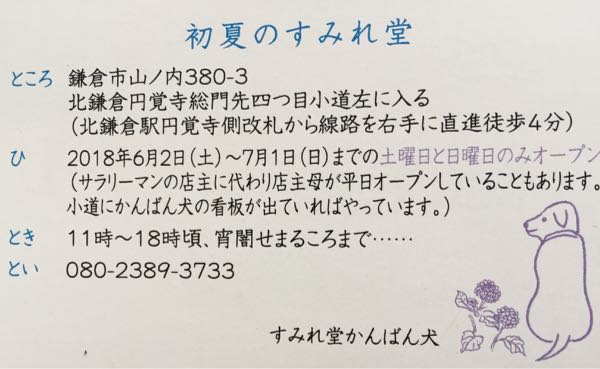 初夏のすみれ堂
ところ 鎌倉市山ノ内380-3
北鎌倉円覚寺総門先四つ目小道左に入る
(北鎌倉駅円覚寺側改札から線路を右手に直進徒歩4分)
ひ 2018年6月2日(土)～7月1日(日)までの土曜日と日曜日のみオープン
(サラリーマンの店主に代わり店主母が平日オープンしていることもあります。
小道にかんばん犬の看板が出ていればやっています。)
とき 11時～18時頃、宵闇せまるころまで……
とい 080-2389-3733
すみれ堂かんばん犬